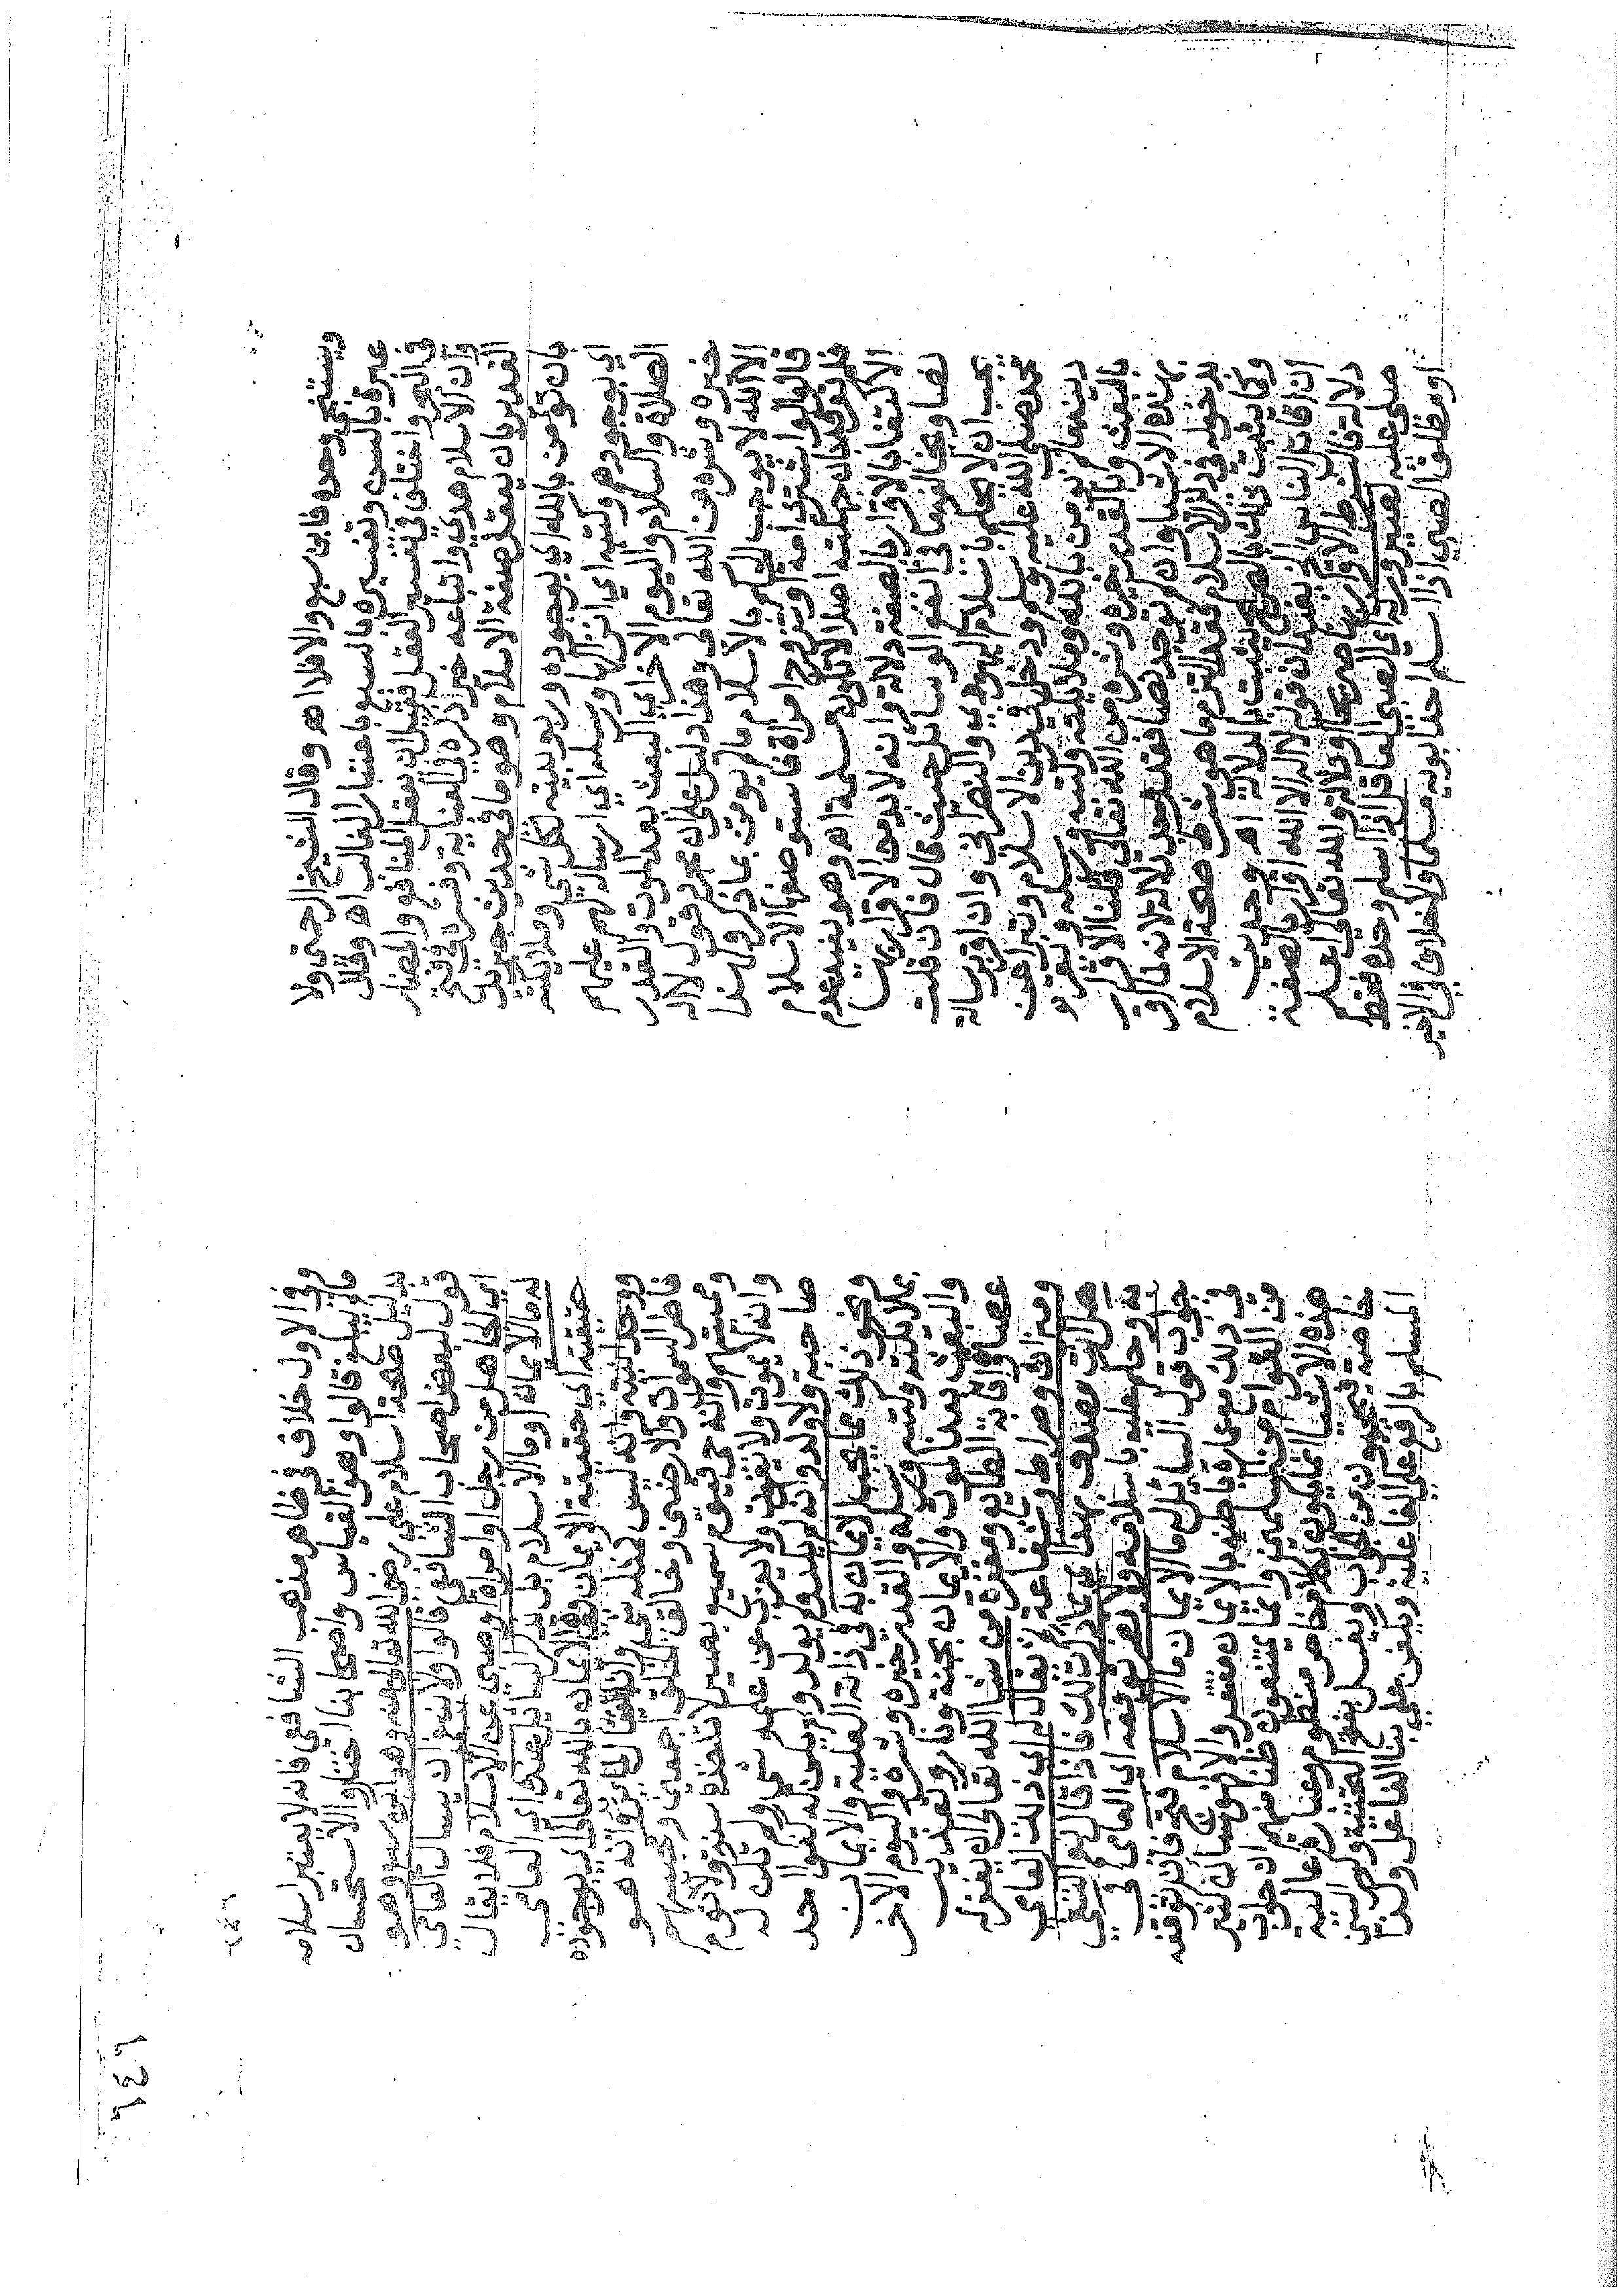 ويستنجي وحده فابن سبع والا فلا اه وقال الشيخ الرحمتي ولا
عبرة بالسن وتفسيره بالسبع باعتبار الغالب اه وقال
في البحر واختلف في تفسير العقل فقيل ان يعقل المنافع والمضار
وان الاسلام هدي واتباعه خير ذكره في العناية وفسره في فتح
القدير بان يعقل صفة الاسلام وهو ما في حديث جبريل
بان تؤمن بالله اي بوجوده وربوبيته لكل شي وملائكته
اي بوجودهم وكتبه اي انزالها ورسله اي ارساله لهم عليهم
الصلاة والسلام واليوم الاخر اي البعث بعد الموت والقدر
خيره وشره من الله تعالى وهذا دليل على ان مجرد قول لا اله
الا الله لا يوجب الحكم بالاسلام ما لم يؤمن بما ذكر ولهذا
قالوا لو اشترى امة او تزوج امراة فاستوصفها الاسلام
فلم تعرف اصلا لا تكون مسلمة اه وهو يفيد عدم
الاكتفا بالاقرار بالصفة دلالة وانه لا بد من الاقرار بها
نصا ويخالفه ما في انفع الوسائل حيث قال فان قلت
يجب ان لا يحكم باسلام اليهودي والنصراني وان اقر برسالة
محمد صلى الله عليه وسلم ودخل في دين الاسلام وتبرا عن
دينه ما لم يؤمن بالله وملائكته وكتبه ورسله ويقر
بالبعث وبالقدر خيره وشره من الله تعالى قلنا الاقرار
بهذه الاشيا وان لم يوجد نصا فقد وجد دلالة لانه لما اقر
بدخوله في دين الاسلام فقد التزم ما هو شرط صحة الاسلام
وكما يثبت ذلك بالصريح يثبت بالدلالة اه وحديث
ان اقاتل الناس الخ يفيد ان قوله لا اله الا الله اقرار بالصفة
دلالة فالشرط الاقرار بها صريحا او دلالة والله تعالى اعلم
صلى عليه لصيرورة اي الصبي العاقل اذا اسلم وحده فقط
او مطلق الصبي اذا اسلم احد ابويه مسلما ولا خلاف في الاخير
١٤٩
وفي الاول خلاف في ظاهر مذهب الشافعي فانه لا يعتبر اسلامه
ما لم يبلغ قالوا وهو القياس واصحابنا اختاروا الاستحسان
بدليل صحة اسلام علي رضي الله تعالى عنه وهو ابن سبع وهو
قول لبعض اصحاب الشافعي قالوا ولا ينبغي ان يسال العامي
اي الجاهل من رجل او امراة او صبي عن الاسلام فلا يقال
له ما الايمان او ما الاسلام بل يذكر السائل عنده اي العامي
حقيقته اي حقيقة الايمان وهو الايمان بالله تعالى اي بوجوده
ووحدانيته وانه ليس كمثله شي وانه هو
فاطر السموات والارض وخالق الخلق اجمعين
ومميتهم وانه حي قيوم سميع بصير لا تاخذه سنة ولا نوم
وانه لا يموت ولا يفوت ولا يعزب عن علمه شي ولم تكن له
صاحبة ولا ولد وانه لم يلد ولم يولد ولم يكن له كفوا احد
ونحو ذلك مما يجب الايمان به في ذاته العلية والايمان
بملائكته وكتبه ورسله والقدر خيره وشره واليوم الاخر
والبعث بعد الموت والايمان بجنة ونار وتعذيب
عصاة واثابة الطايع ومغفرة من شا الله تعالى ان يغفر له
وميزان وصراط وشفاعة ثم يقال له اي ذلك العامي
هل انت مصدق بهذا اي بما ذكرت لك فاذا قال نعم اكتفي
به وحكم عليه باسلامه ولا يضر توقفه اي العامي في
جواب قول السائل له ما الايمان ما الاسلام فتح فان توقفه
في ذلك مع عمارة باطنه بالايمان مشهور
من العوام من المسلمين
هذه الاشيا انما يكون بكلام خاص منظوم وعبارة عالية
خاصة فيحجمون عن الجواب ويغسل بفتح التحتية وكسر السين
المسلم بالرفع على الفاعلية ويكفن على بنا الفاعل ويدفن